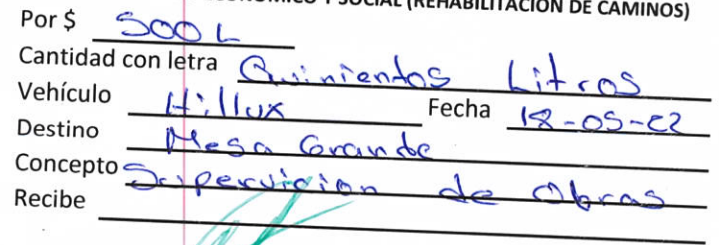 ECONÓMICO Y SOCIAL (REHABILITACIÓN DE CAMINOS)
Por $ 500 L
Cantidad con letra Quinientos Litros
Vehículo Hillux Fecha 18-05-22
Destino Mesa Grande
Concepto Supervicion de Obras
Recibe